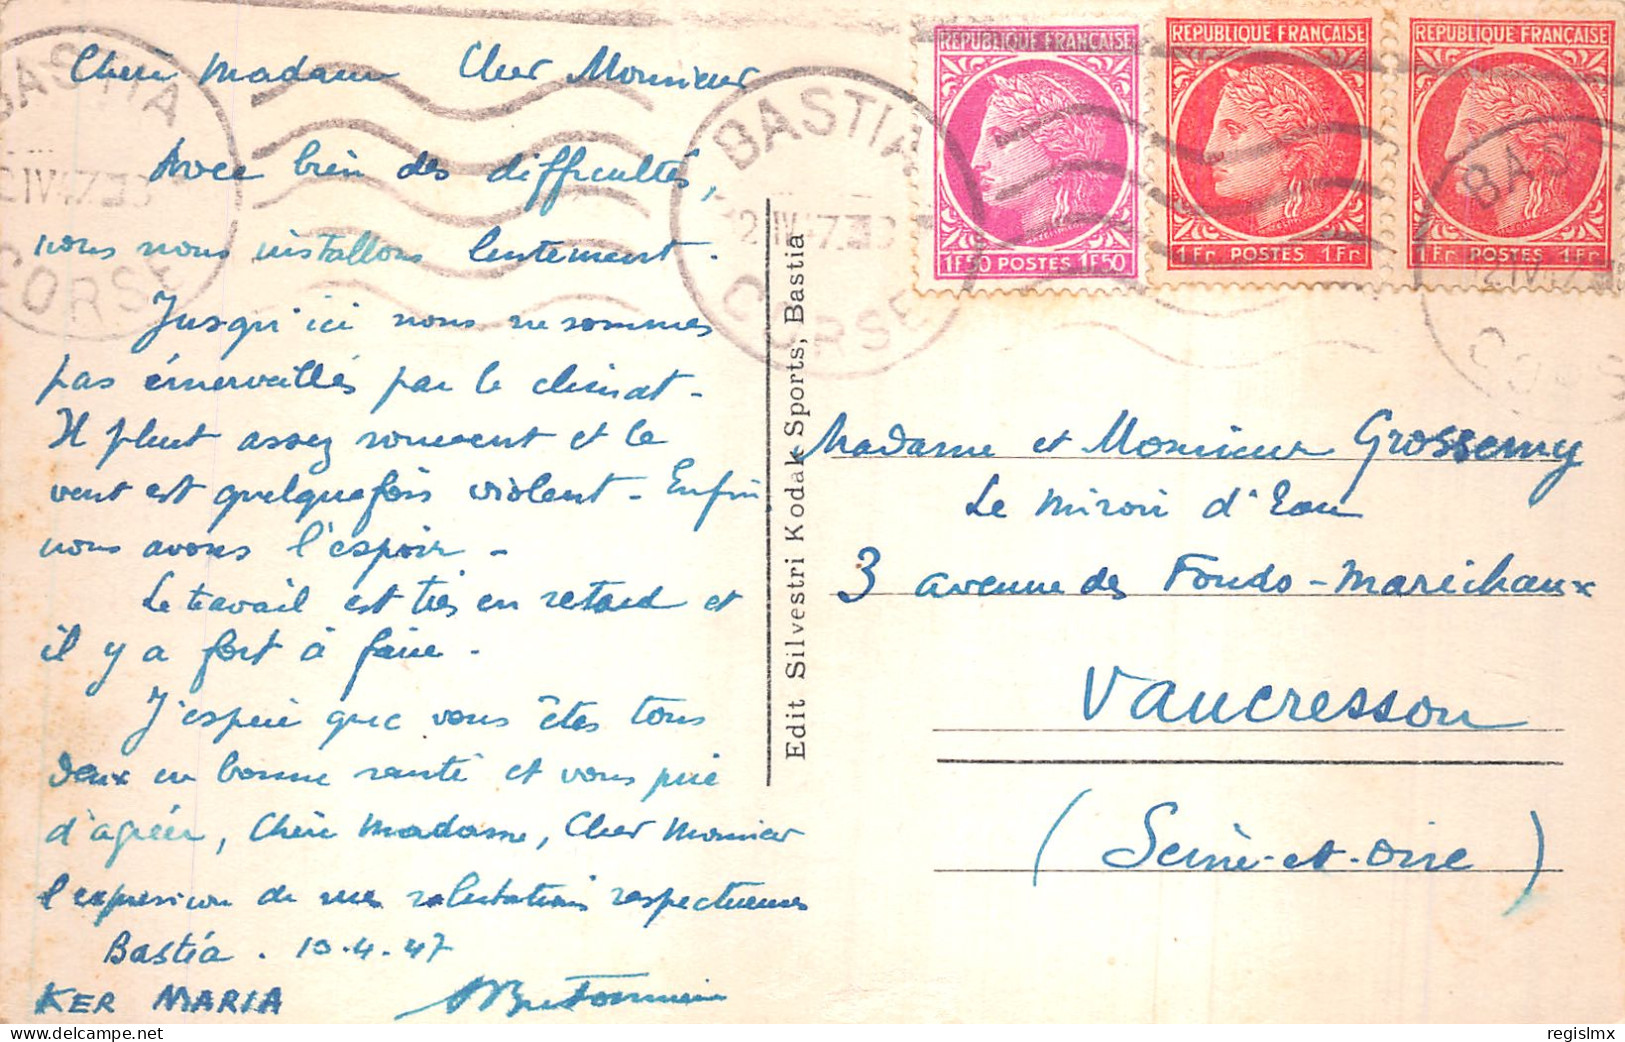 Chère Madame Cher Monsieur
Avec bien des difficultés,
nous nous installons lentement.
Jusqu'ici nous ne sommes
pas émerveillés par le climat -
Il pleut assez souvent et le
vent est quelquefois violent - Enfin
nous avons l'espoir -
Le travail est très en retard et
il y a fort à faire -
J'espère que vous êtes tous
deux en bonne santé et vous prie
d'agréer, Chère Madame, Cher Monsieur
l'expression de mes salutations respectueuses
Bastia . 10.4.47
KER MARIA
Edit Silvestri Kodak Sports, Bastia
BASTIA
CORSE
BASTIA
12 IV 47
CORSE
REPUBLIQUE FRANÇAISE
1F50 POSTES 1F50
REPUBLIQUE FRANÇAISE
1Fr. POSTES 1Fr.
REPUBLIQUE FRANÇAISE
1Fr. POSTES 1Fr.
Madame et Monsieur Grossemy
Le Miroir d'Eau
3 avenue des Fonds-Maréchaux
Vaucresson
(Seine-et-Oise)
regislmx
delcampe.net